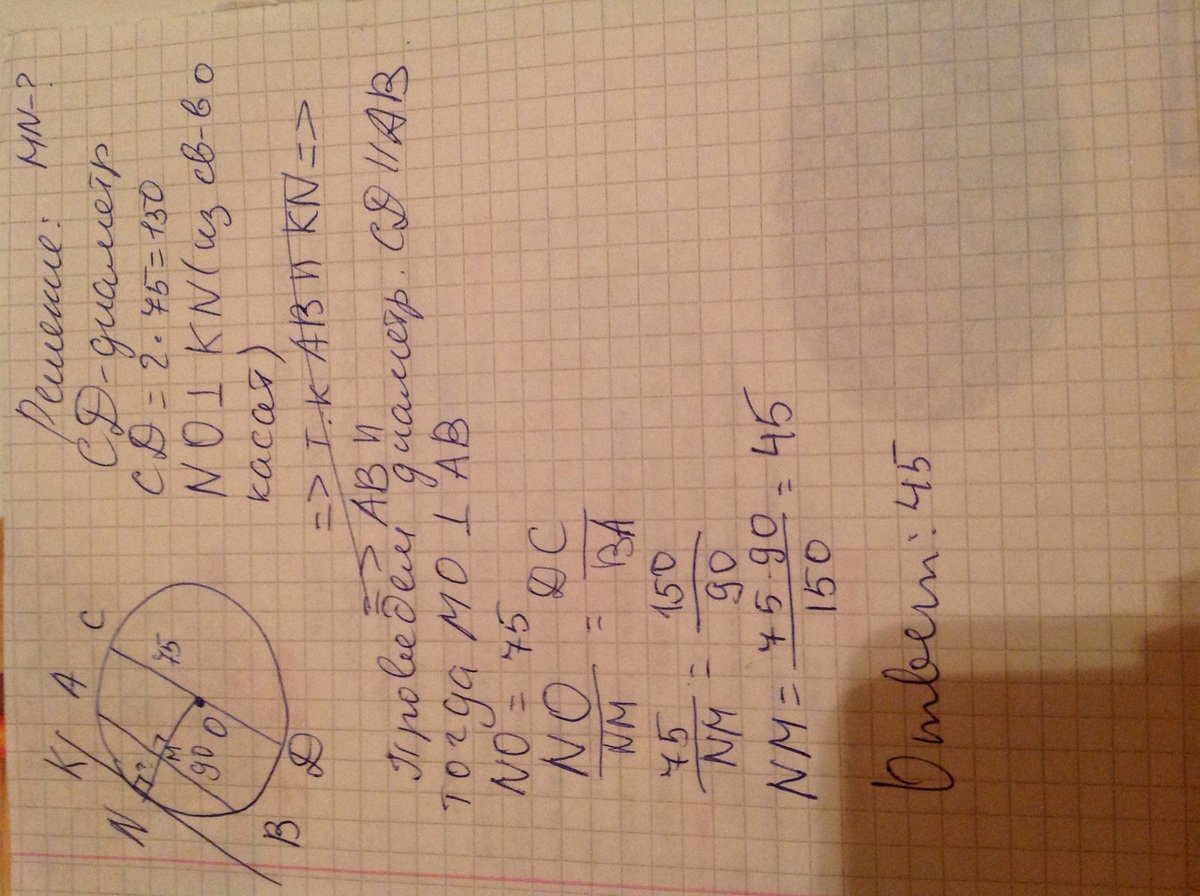 Решение: MN-?
CD-диаметр
CD = 2·75=150
NO⊥KN(из св-во
касат)
=> т.к AB и KN =>
=> AB и
Проведем диаметр. CD||AB
тогда MO⊥AB
NO=75
NO/NM = DC/BA
75/NM = 150/90
NM = 75·90/150 = 45
Ответ: 45
K A C
N M 75
90 O
B D